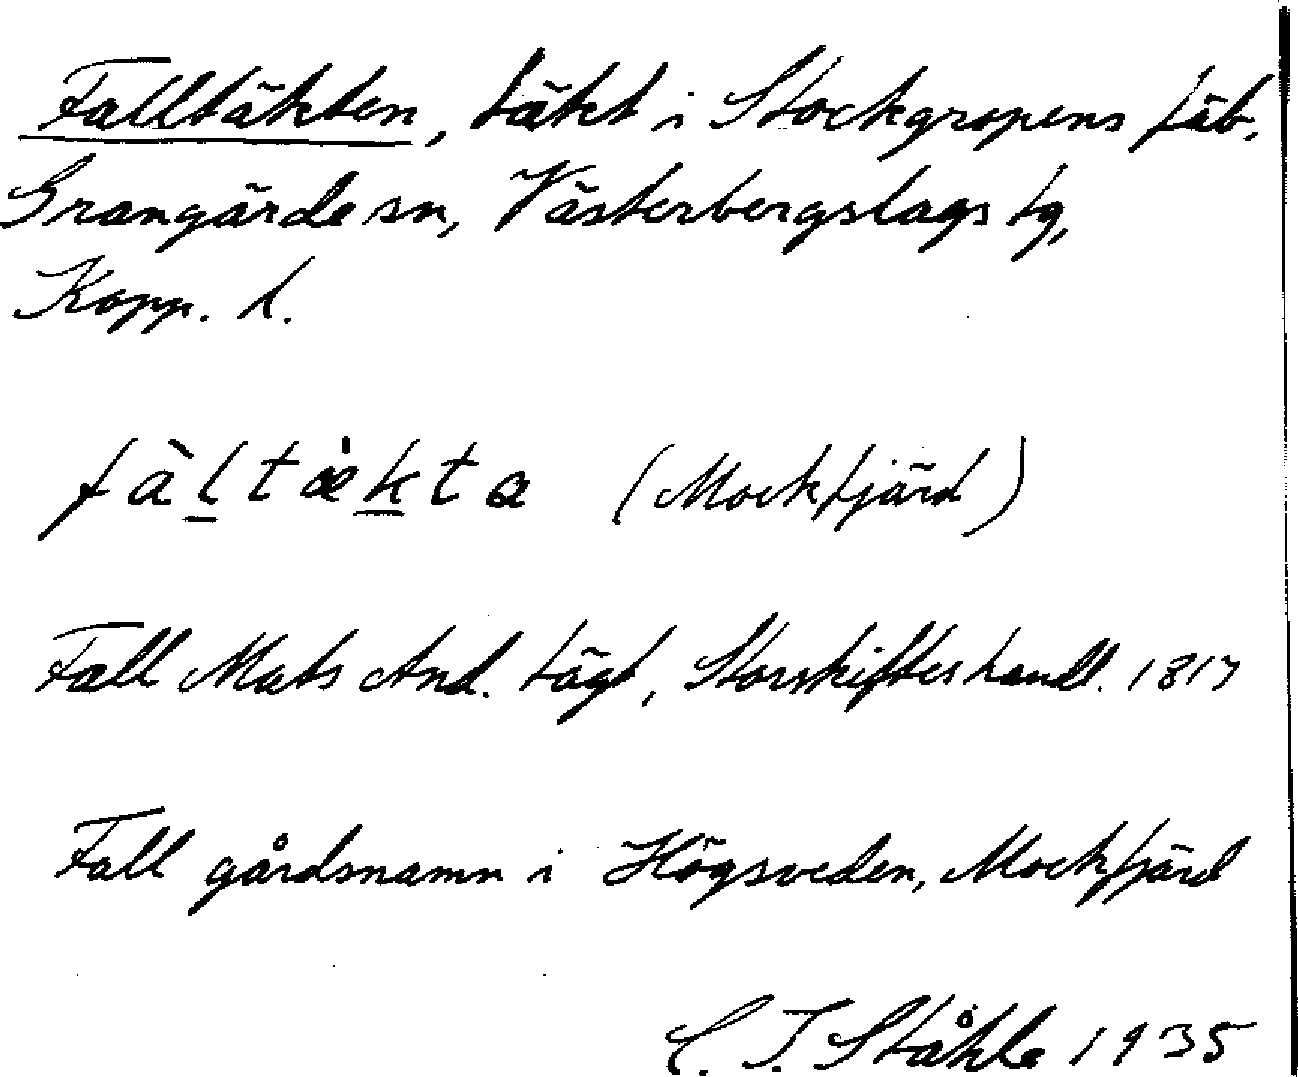 Falltäkten, täkt i Stockgropens fäb.
Grangärde sn, Västerbergslags tg,
Kopp. l.
fàltækta (Mockfjärd)
Fall Mats And. tägt, Storskifteshandl. 1817
Fall gårdsnamn i Högsveden, Mockfjärd
C. I. Ståhle 1935